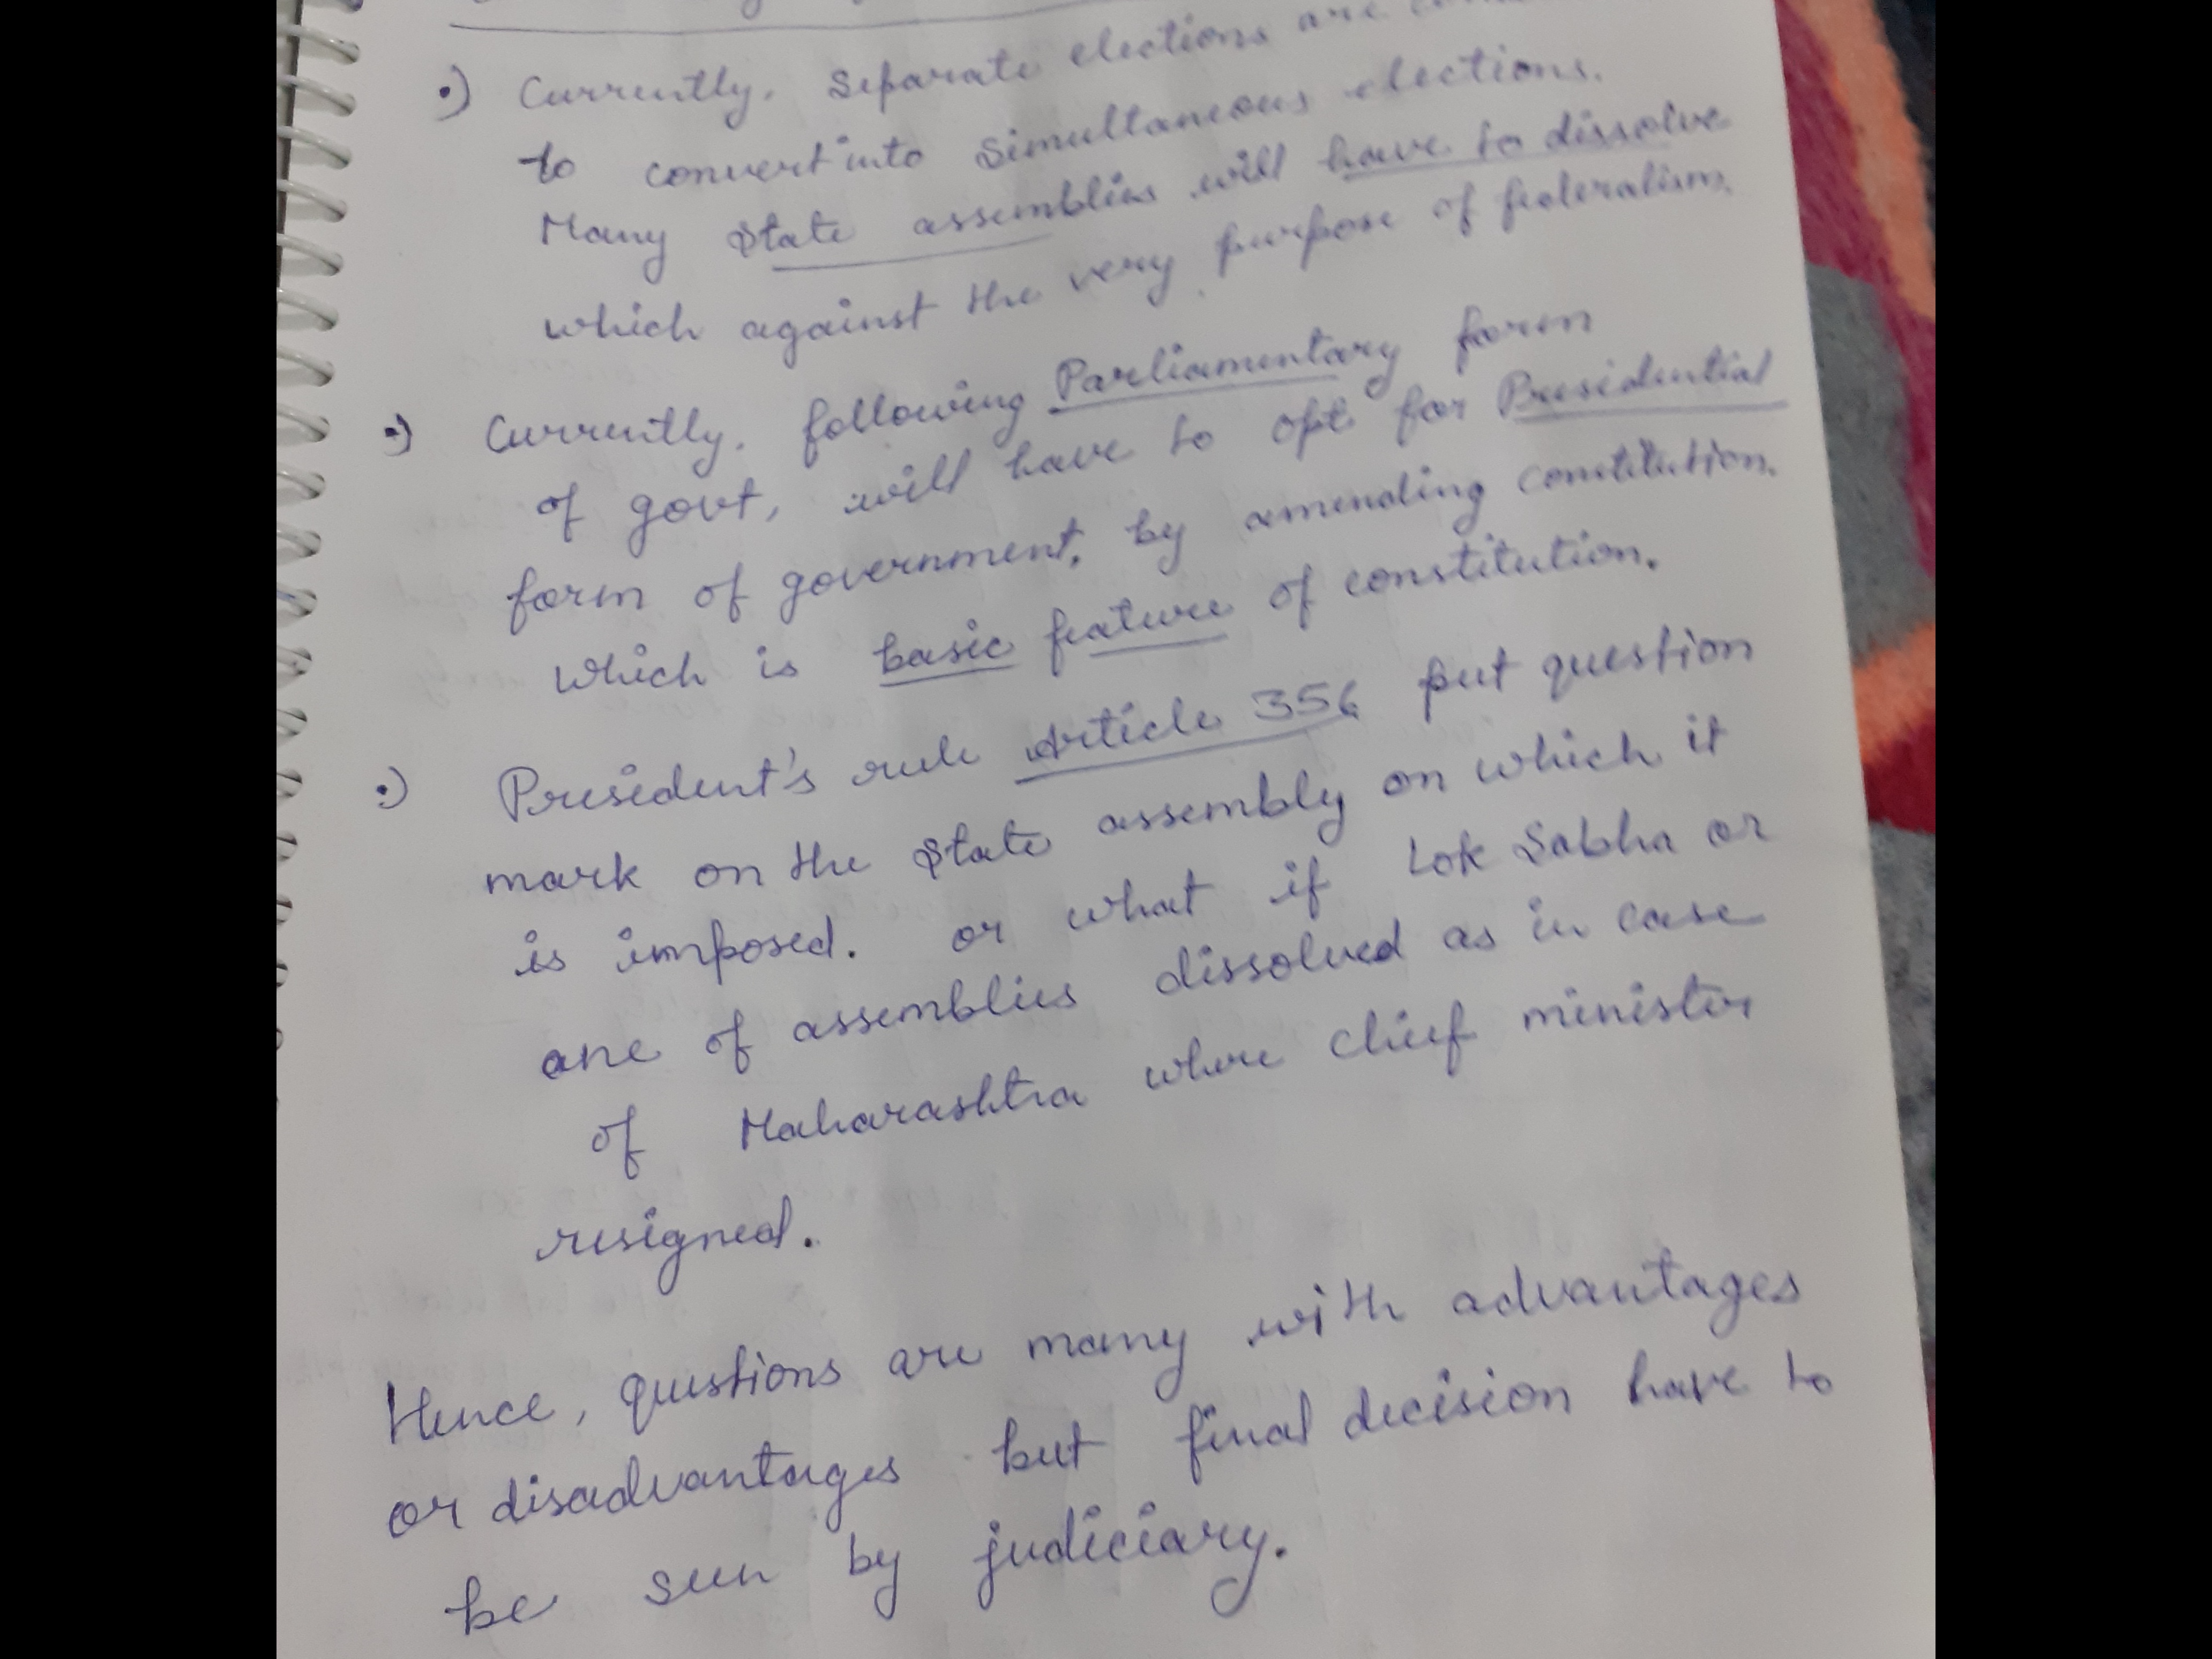 •) Currently, Separate elections are
to convert into Simultaneous elections.
Many State assemblies will have to dissolve
which against the very purpose of federalism.
•) Currently, following Parliamentary form
of govt, will have to opt for Presidential
form of government, by amending constitution.
which is basic feature of constitution.
•) President's rule Article 356 put question
mark on the State assembly on which it
is imposed. or what if Lok Sabha or
one of assemblies dissolved as in case
of Maharashtra where chief minister
resigned.
Hence, questions are many with advantages
or disadvantages but final decision have to
be seen by judiciary.